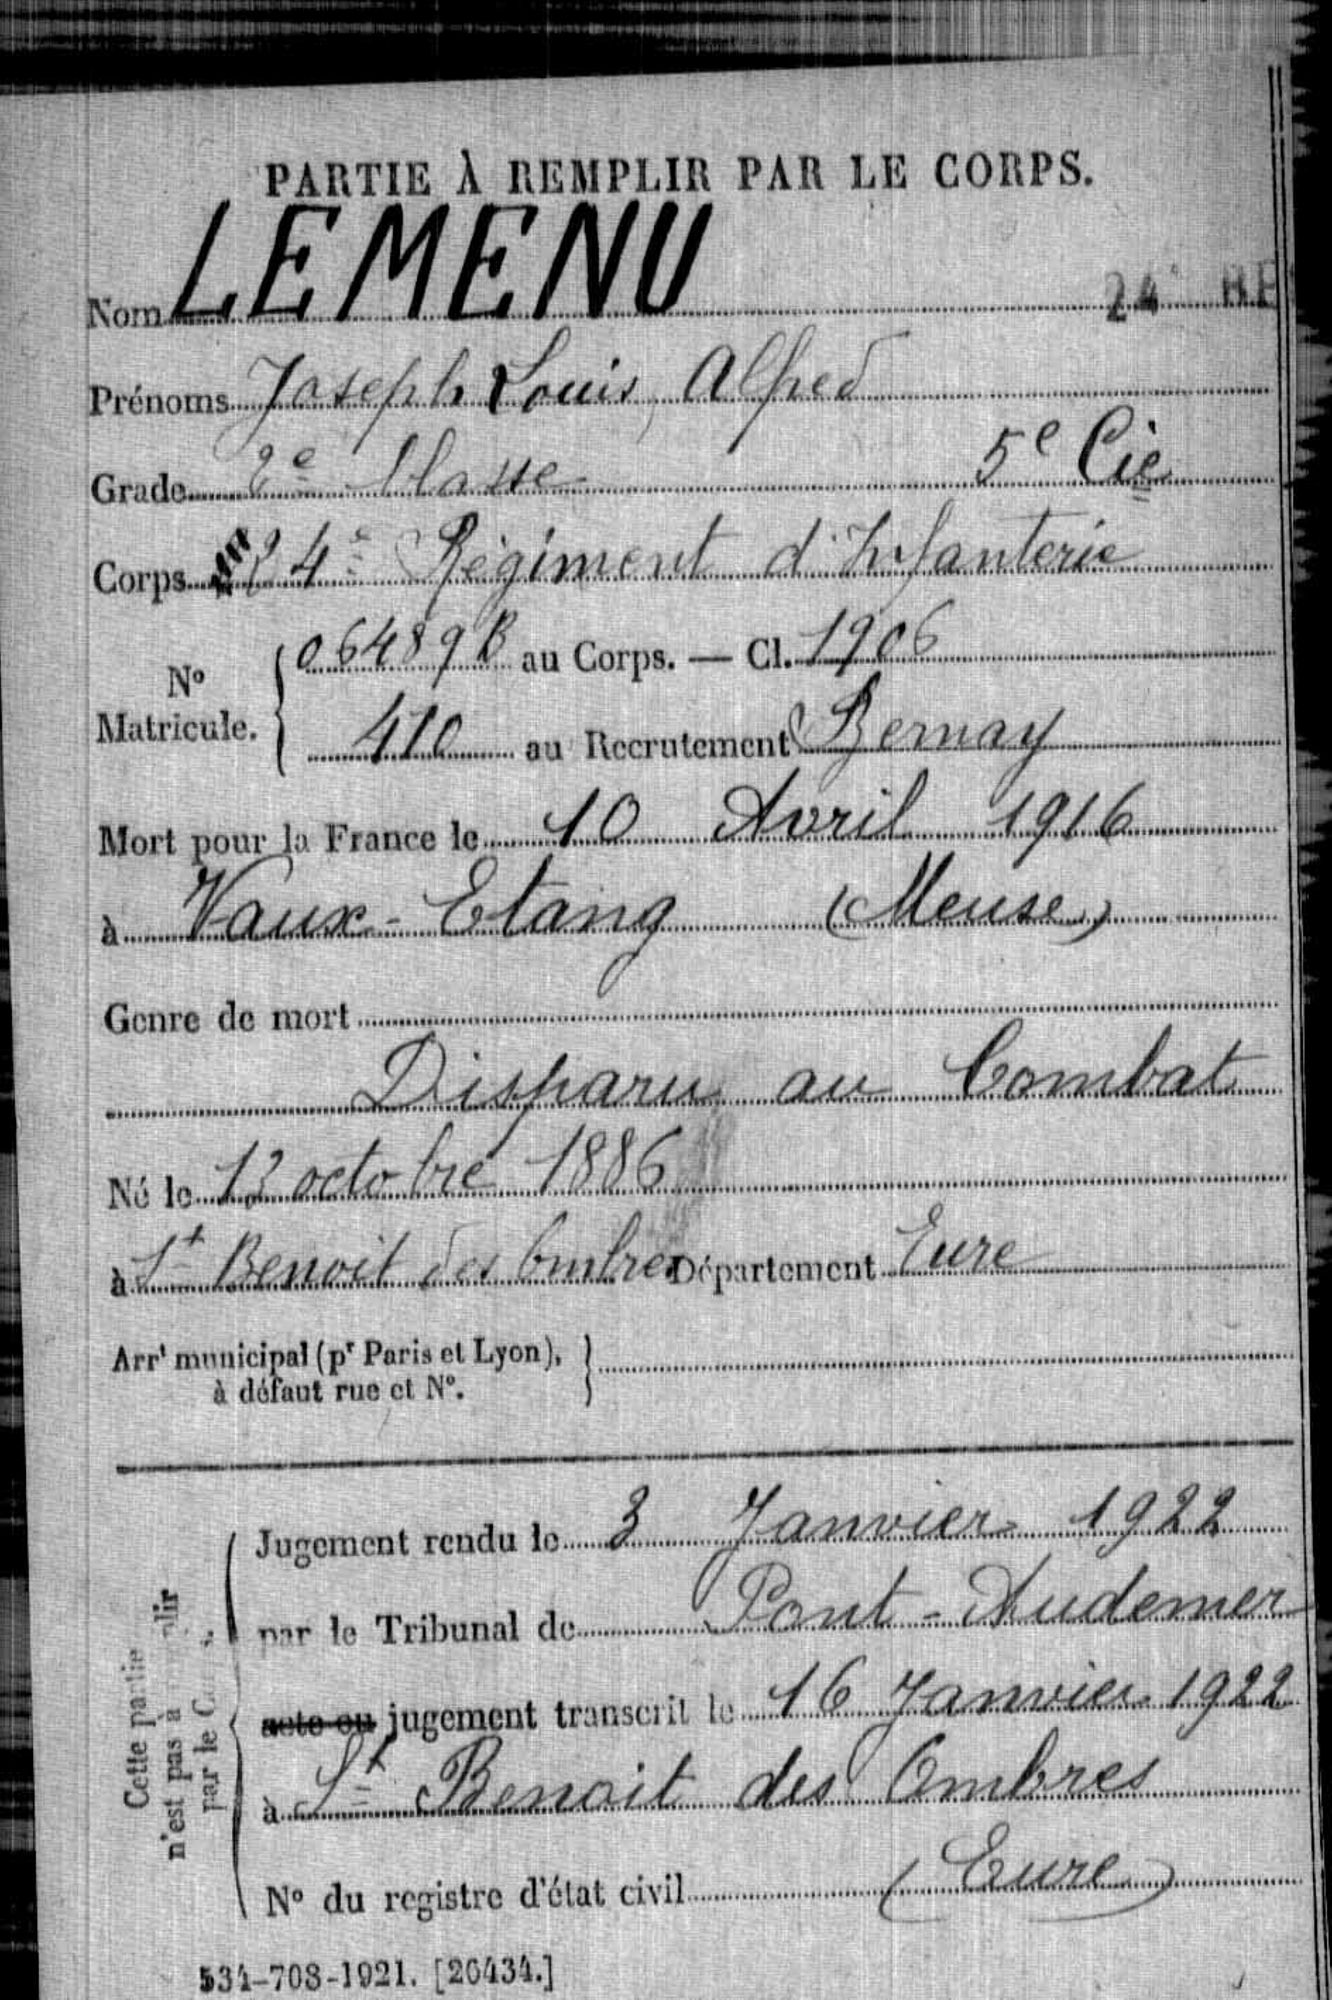 PARTIE À REMPLIR PAR LE CORPS.
Nom LEMENU
24
Prénoms Joseph Louis, Alfred
Grade 2e Classe 5e Cie
Corps 24e Régiment d'Infanterie
No Matricule. { 06489 B au Corps. — Cl. 1906
410 au Recrutement Bernay
Mort pour la France le 10 Avril 1916
à Vaux-Etang (Meuse)
Genre de mort
Disparu au Combat
Né le 13 octobre 1886
à St Benoit des Ombres Département Eure
Arrt municipal (pr Paris et Lyon), }
à défaut rue et No.
Cette partie n'est pas à remplir par le Corps.
Jugement rendu le 3 Janvier 1922
par le Tribunal de Pont-Audemer
acte ou jugement transcrit le 16 Janvier 1922
à St Benoit des Ombres
No du registre d'état civil (Eure)
534-708-1921. [26434.]